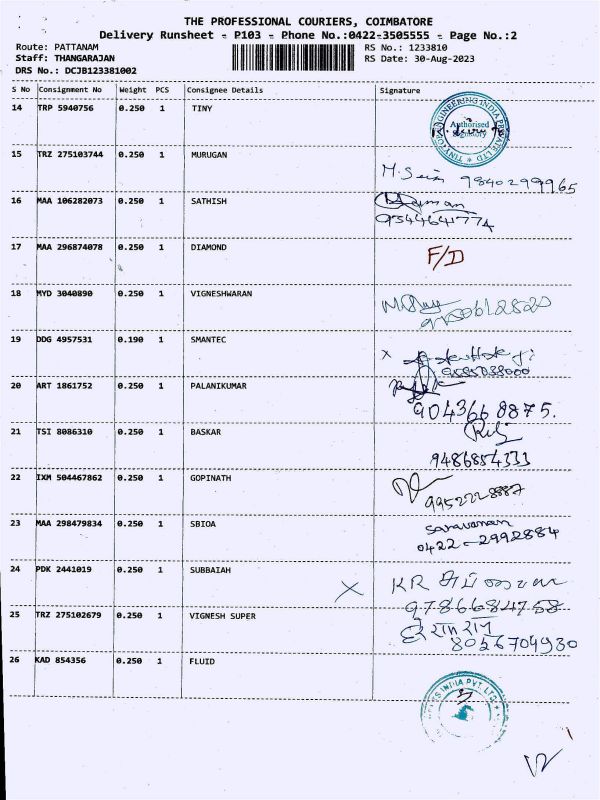 THE PROFESSIONAL COURIERS, COIMBATORE
Delivery Runsheet - P103 - Phone No.:0422-3505555 - Page No.:2
Route: PATTANAM RS No.: 1233810
Staff: THANGARAJAN RS Date: 30-Aug-2023
DRS No.: DCJB123381002
S No Consignment No Weight PCS Consignee Details Signature
14 TRP 5940756 0.250 1 TINY
Authorised
Signatory
15 TRZ 275103744 0.250 1 MURUGAN
9840299965
16 MAA 106282073 0.250 1 SATHISH
9344641774
17 MAA 296874078 0.250 1 DIAMOND F/D
18 MYD 3040890 0.250 1 VIGNESHWARAN
19 DDG 4957531 0.190 1 SMANTEC
20 ART 1861752 0.250 1 PALANIKUMAR
9043668875.
21 TSI 8086310 0.250 1 BASKAR
9486854333
22 IXM 504467862 0.250 1 GOPINATH
9952228887
23 MAA 298479834 0.250 1 SBIOA Saravanan
0422-2992884
24 PDK 2441019 0.250 1 SUBBAIAH KR
9786684758
25 TRZ 275102679 0.250 1 VIGNESH SUPER
8026704930
26 KAD 854356 0.250 1 FLUID
INDIA PVT. LTD